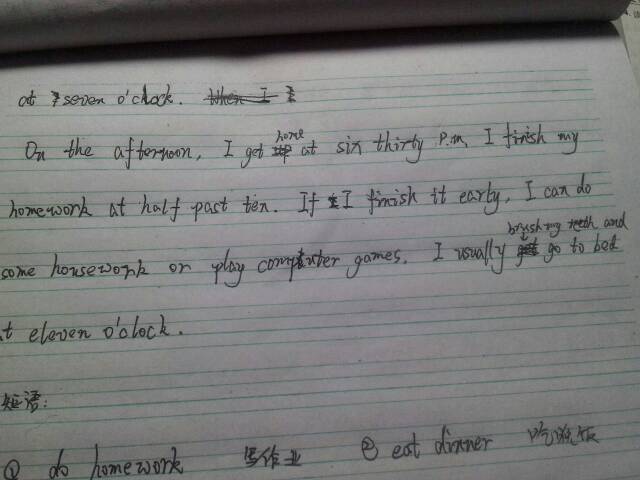 at seven o'clock.
On the afternoon, I get home at six thirty p.m. I finish my
homework at half past ten. If I finish it early, I can do
some housework or play computer games. I usually brush my teeth and go to bed
t eleven o'clock.
短语:
① do homework 写作业 ② eat dinner 吃晚饭